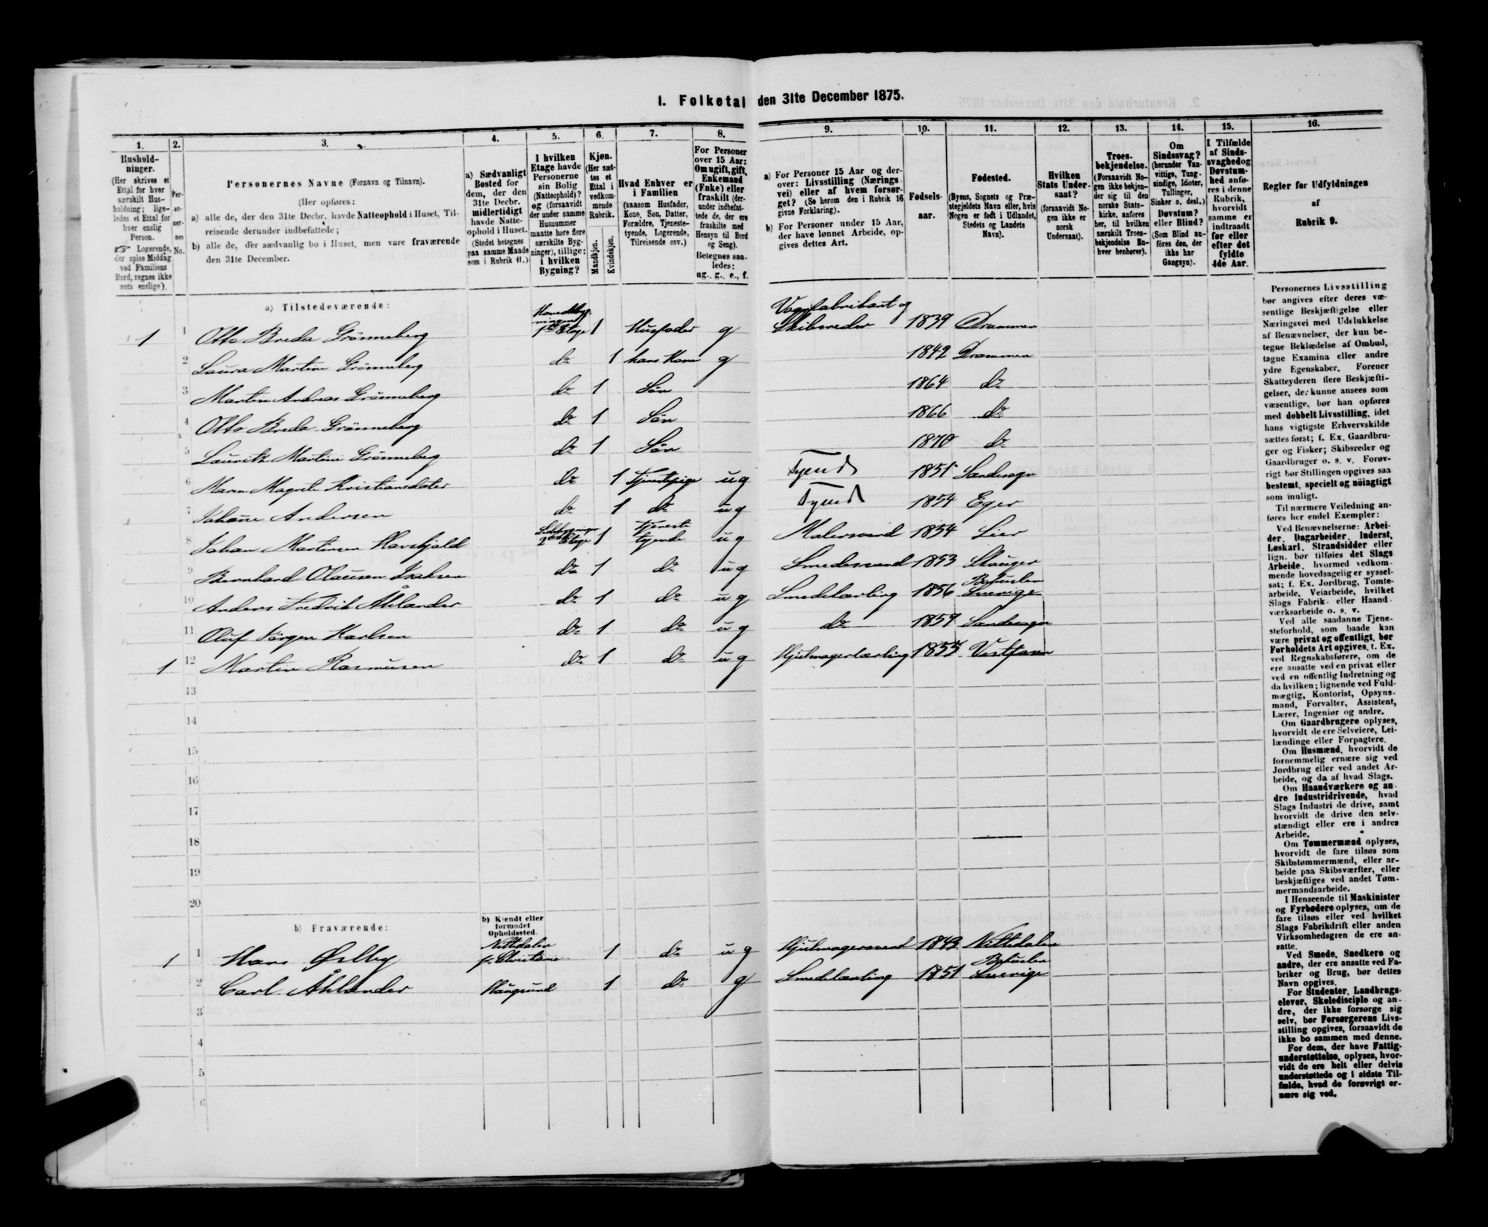 I. Folketal den 31te December 1875.
1.
2.
3.
4.
5.
6.
7.
8.
9.
10.
11.
12.
13.
14.
15.
16.
Hushold-
ninger.
(Her skrives et
Ettal for hver
særskilt Hus-
holdning; lige-
ledes et Ettal for
hver enslig
Person.
☞ Logerende,
der spise Middag
ved Familiens
Bord, regnes ikke
som enslige).
Per-
so-
ner-
nes
No.
Personernes Navne (Fornavn og Tilnavn).
(Her opføres:
a) alle de, der den 31te Decbr. havde Natteophold i Huset, Til-
reisende derunder indbefattede;
b) alle de, der sædvanlig bo i Huset, men vare fraværende
den 31te December.
a) Sædvanligt
Bosted for
dem, der den
31te Decbr.
midlertidigt
havde Natte-
ophold i Huset.
(Stedet betegnes
paa samme Maade
som i Rubrik 11.)
I hvilken
Etage havde
Personerne
sin Bolig
(Natteophold)?
og (forsaavidt
der under samme
Husnummer
maatte høre flere
særskilte Byg-
ninger), tillige:
i hvilken
Bygning?
Kjøn.
(Her sæt-
tes et
Ettal i
vedkom-
mende
Rubrik.
Mandkjøn.
Kvindekjøn.
Hvad Enhver er
i Familien
(saasom Husfader,
Kone, Søn, Datter,
Forældre, Tjeneste-
tyende, Logerende,
Tilreisende osv.)
For Personer
over 15 Aar:
Om ugift, gift,
Enkemand
(Enke) eller
fraskilt (der-
under indbefat-
tede de, der ere
fraskilte med
Hensyn til Bord
og Seng).
Betegnes saa-
ledes:
ug., g., e., f.
a) For Personer 15 Aar og der-
over: Livsstilling (Nærings-
vei) eller af hvem forsør-
get? (Se herom den i Rubrik 16
givne Forklaring).
b) For Personer under 15 Aar,
der have lønnet Arbeide, op-
gives dettes Art.
Fødsels-
aar.
Fødested.
(Byens, Sognets og Præ-
stegjeldets Navn eller, hvis
Nogen er født i Udlandet,
Stedets og Landets
Navn).
Hvilken
Stats Under-
saat?
(forsaavidt No-
gen ikke er
norsk
Undersaat).
Troes-
bekjendelse.
(Forsaavidt No-
gen ikke bekjen-
der sig til den
norske Stats-
kirke, anføres
her, til hvilken
særskilt Troes-
bekjendelse En-
hver henhører).
Om
Sindssvag?
(herunder Van-
vittige, Tung-
sindige, Idioter,
Tullinger,
Sinker o. desl.)
Døvstum?
eller Blind?
(Som Blind an-
føres den, der
ikke har
Gangsyn).
I Tilfælde
af Sinds-
svaghed og
Døvstum-
hed anfø-
res i denne
Rubrik,
hvorvidt
samme er
indtraadt
før eller
efter det
fyldte
4de Aar.
Regler for Udfyldningen
af
Rubrik 9.
a) Tilstedeværende:
1 1 Otto Breda Grønneberg 1ste Etage 1 Husfader g Vognfabrikant og Skibsreder 1839 Drammen
2 Laura Martine Grønneberg do 1 hans Kone g 1842 Drammen
3 Martin Andreas Grønneberg do 1 Søn 1864 do
4 Otto Breda Grønneberg do 1 Søn 1866 do
5 Lauritz Martin Grønneberg do 1 Søn 1870 do
6 Maren Magrete Kristiansdater do 1 Tjenstepige ug Tyende 1851 Sandesogn
7 Johane Andersen do 1 do ug Tyende 1854 Eger
8 Johan Martinsen Havskjold 2den Etage 1 Tjeneste tyende ug Malersvend 1854 Lier
9 Bernhard Olausen do 1 do ug Smedesvend 1853 Skauger
10 Anders Fredrik Ahlander do 1 do ug Smedelærling 1856 Sverige
11 Oluf Jørgen Karlsen do 1 do ug do 1859 Sandesogn
1 12 Martin Rasmusen do 1 do ug Hjulmagerlærling 1855 Vestfossen
13
14
15
16
17
18
19
20
b) Fraværende:
b) Kjendt eller
formodet
Opholdssted.
1 1 Hans Ørlby Nittedalen p. Christiania 1 do ug Hjulmagersvend 1843 Nittedalen
2 Carl Åhlander Haugsund 1 do g Smedelærling 1851 Sverige
3
4
5
6
Personernes Livsstilling
bør angives efter deres væ-
sentlige Beskjæftigelse eller
Næringsvei med Udelukkelse
af Benævnelser, der kun be-
tegne Beklædelse af Ombud,
tagne Examina eller andre
ydre Egenskaber. Forener
Skatteyderen flere Beskjæfti-
gelser, der kunne ansees som
væsentlige, bør han opføres
med dobbelt Livsstilling, idet
hans vigtigste Erhvervskilde
sættes først; f. Ex. Gaardbru-
ger og Fisker; Skibsreder og
Gaardbruger o. s. v. Forøv-
rigt bør Stillingen opgives saa
bestemt, specielt og nøiagtigt
som muligt.
Til nærmere Veiledning an-
føres her endel Exempler:
Ved Benævnelserne: Arbei-
der, Dagarbeider, Inderst,
Løskarl, Strandsidder eller
lign. bør tilføies det Slags
Arbeide, hvormed vedkom-
mende hovedsagelig er syssel-
sat; f. Ex. Jordbrug, Tomte-
arbeide, Veiarbeide, hvilket
Slags Fabrik- eller Haand-
værksarbeide o. s. v.
Ved alle saadanne Tjene-
steforhold, som baade kan
være privat og offentligt, bør
Forholdets Art opgives, t. Ex.
ved Regnskabsførere, om de
ere ansatte ved en privat eller
ved en offentlig Indretning og
da hvilken; lignende ved Fuld-
mægtig, Kontorist, Opsyns-
mand, Forvalter, Assistent,
Lærer, Ingeniør og andre.
Om Gaardbrugere oplyses,
hvorvidt de ere Selveiere, Lei-
lændinge eller Forpagtere.
Om Husmænd, hvorvidt de
fornemmelig ernære sig ved
Jordbrug eller ved andet Ar-
beide, og da af hvad Slags.
Om Haandværkere og an-
dre Industridrivende, hvad
Slags Industri de drive, samt
hvorvidt de drive den selv-
stændigt eller ere i andres
Arbeide.
Om Tømmermænd oplyses,
hvorvidt de fare tilsøs som
Skibstømmermænd, eller ar-
beide paa Skibsværfter, eller
beskjæftiges ved andet Tøm-
mermandsarbeide.
I Henseende til Maskinister
og Fyrbødere oplyses, om de
fare tilsøs eller ved hvilket
Slags Fabrikdrift eller anden
Virksomhedsgren de ere an-
satte.
Ved Smede, Snedkere og
andre, der ere ansatte ved Fa-
briker og Brug, bør dettes
Navn opgives.
For Studenter, Landbrugs-
elever, Skoledisciple og an-
dre, der ikke forsørge sig
selv, bør Forsørgerens Livs-
stilling opgives, forsaavidt de
ikke bo sammen med denne.
For dem, der have Fattig-
understøttelse, oplyses, hvor-
vidt de ere helt eller delvis
understøttede og i sidste Til-
fælde, hvad de forøvrigt er-
nære sig ved.